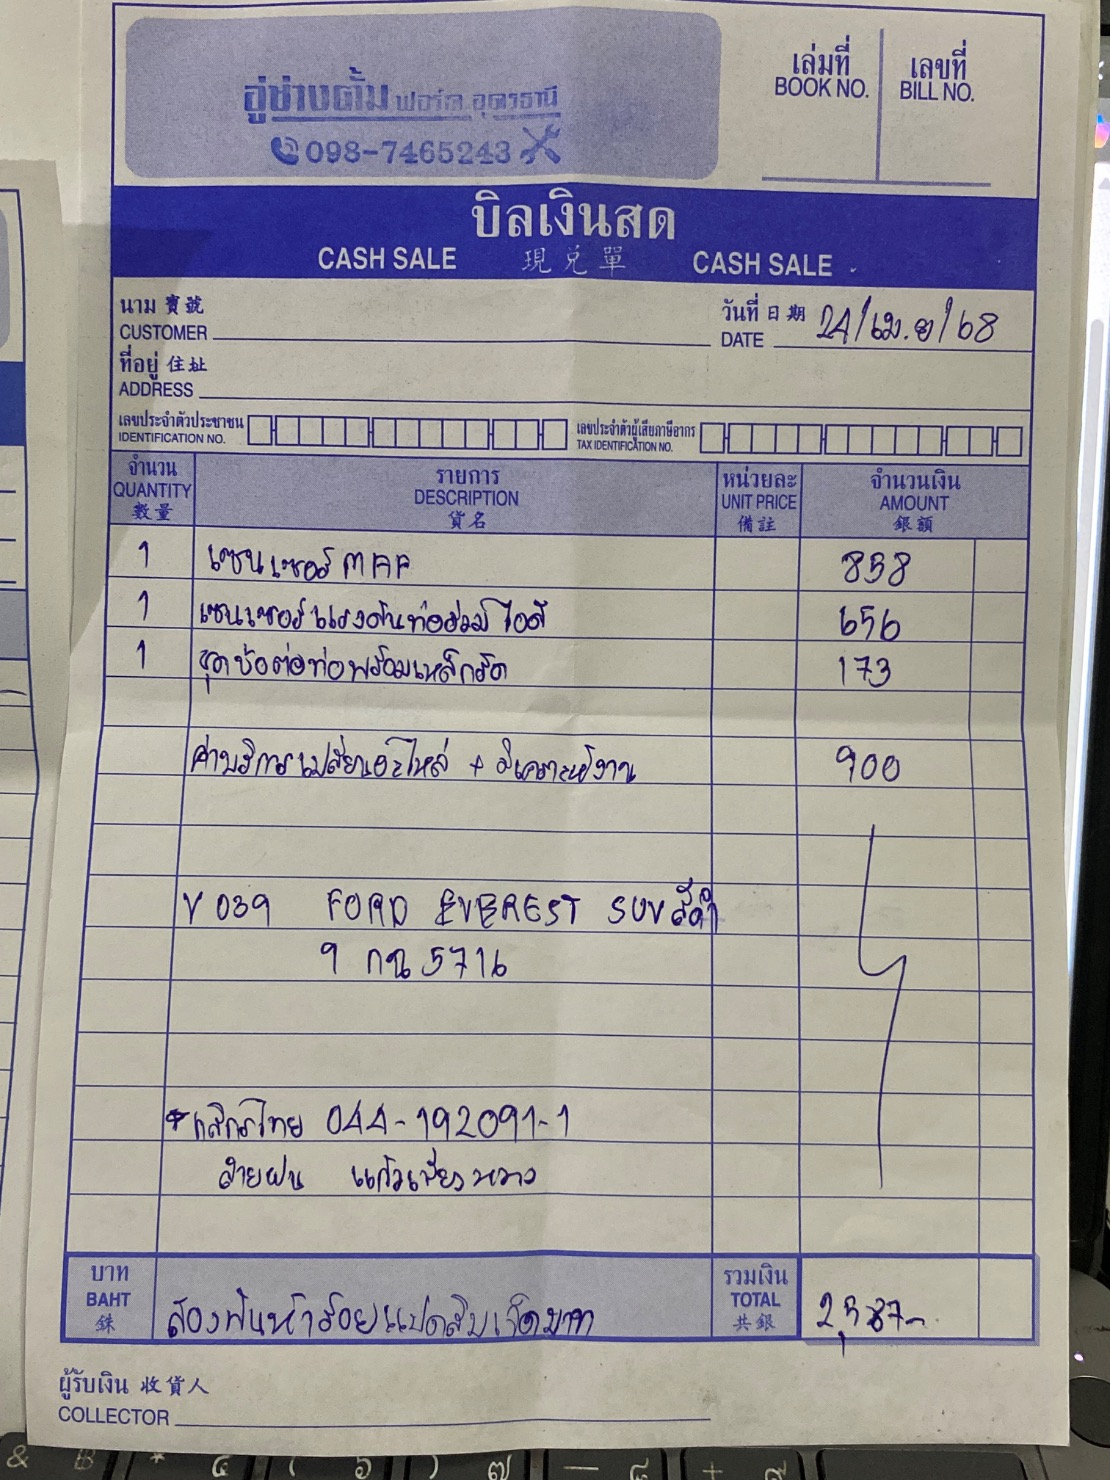 อู่ช่างตั้ม ฟอร์ด อุดรธานี
098-7465243
เล่มที่ เลขที่
BOOK NO. BILL NO.
บิลเงินสด
CASH SALE 現兌單 CASH SALE
นาม 寶號 วันที่ 日期 24/เม.ย/68
CUSTOMER DATE
ที่อยู่ 住址
ADDRESS
เลขประจำตัวประชาชน เลขประจำตัวผู้เสียภาษีอากร
IDENTIFICATION NO. TAX IDENTIFICATION NO.
จำนวน รายการ หน่วยละ จำนวนเงิน
QUANTITY DESCRIPTION UNIT PRICE AMOUNT
數量 貨名 備註 銀額
1 เซนเซอร์ MAP 858
1 เซนเซอร์แรงดันท่อร่วมไอดี 656
1 ชุดข้อต่อท่อพร้อมเหล็กรัด 173
ค่าบริการเปลี่ยนอะไหล่ + วิเคราะห์งาน 900
V 039 FORD EVEREST SUV สีดำ
9 กฉ 5716
*กสิกรไทย 044-192091-1
สายฝน แก้วเชียงหวาง
บาท รวมเงิน
BAHT สองพันห้าร้อยแปดสิบเจ็ดบาท TOTAL 2,587-
銖 共銀
ผู้รับเงิน 收貨人
COLLECTOR
& B * ( ) — +